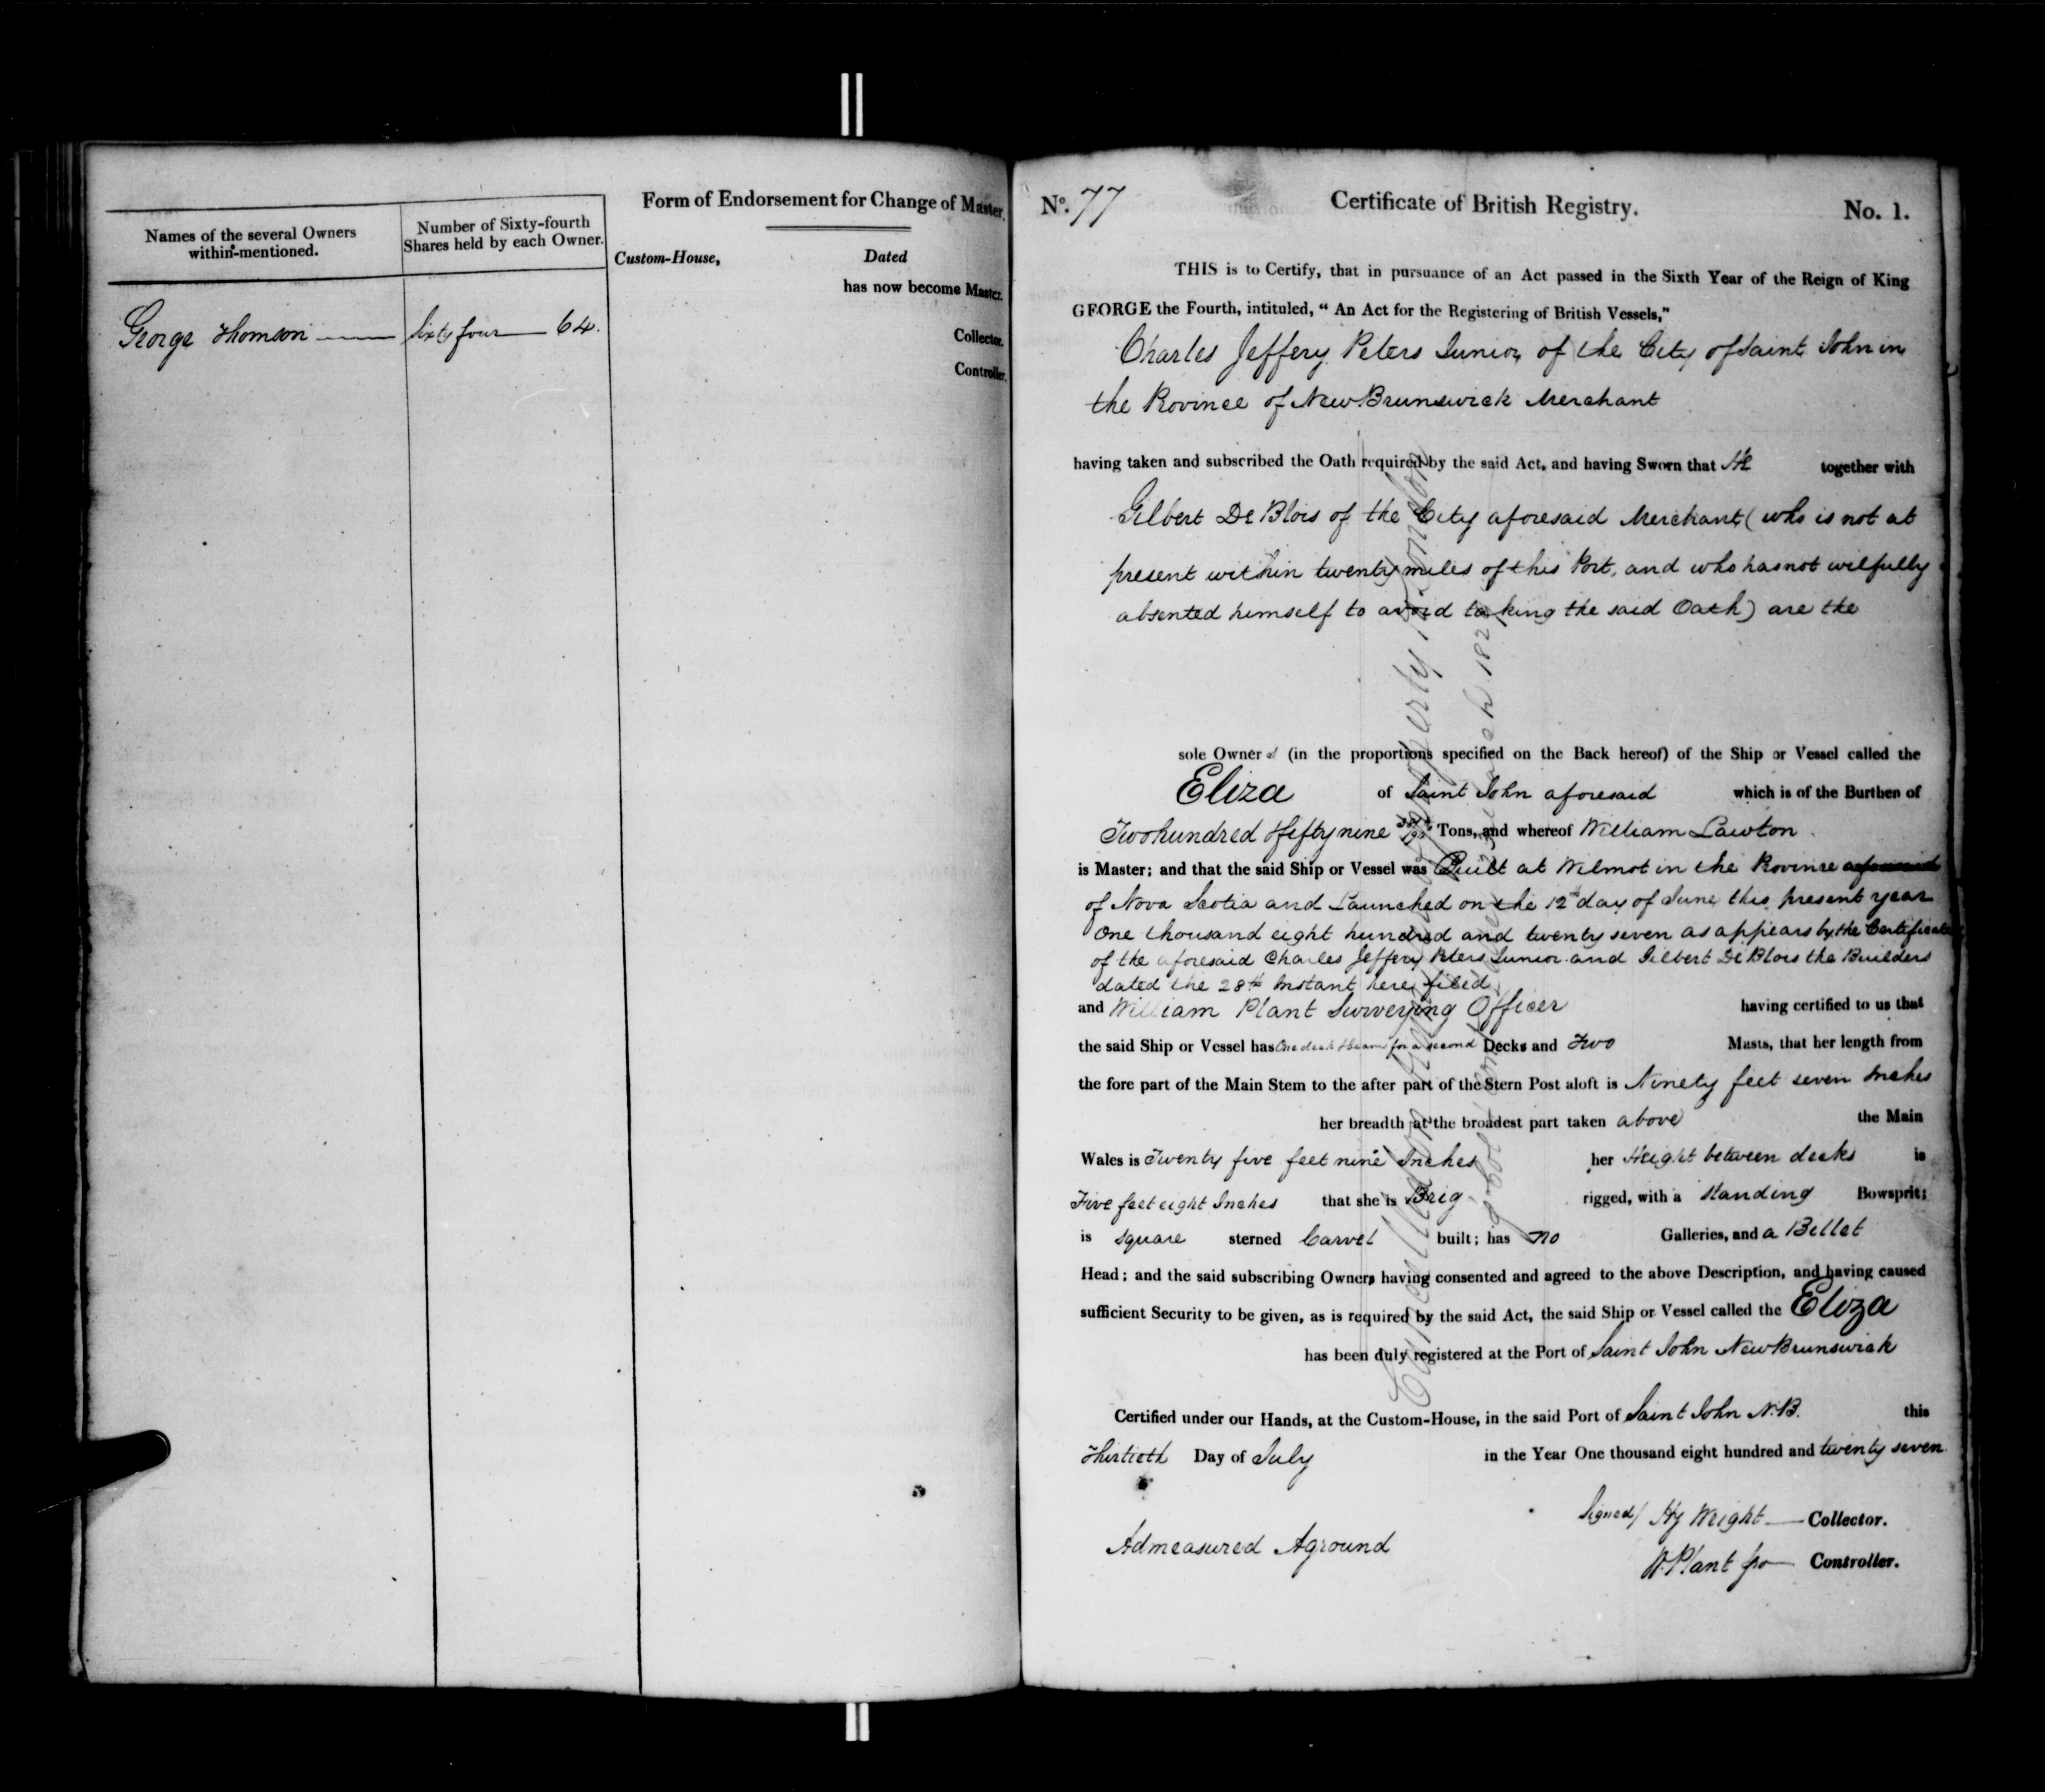 Names of the several Owners
within-mentioned.
Number of Sixty-fourth
Shares held by each Owner.
George Thomson
Sixty four 64.
Form of Endorsement for Change of Master.
Custom-House, Dated
has now become Master.
Collector.
Controller.
No. 77 Certificate of British Registry. No. 1.
THIS is to Certify, that in pursuance of an Act passed in the Sixth Year of the Reign of King
GEORGE the Fourth, intituled, “ An Act for the Registering of British Vessels,”
Charles Jeffery Peters Junior of the City of Saint John in
the Province of New Brunswick Merchant
having taken and subscribed the Oath required by the said Act, and having Sworn that He together with
Gilbert De Blois of the City aforesaid Merchant ( who is not at
present within twenty miles of this Port, and who has not wilfully
absented himself to avoid taking the said Oath) are the
sole Owners (in the proportions specified on the Back hereof) of the Ship or Vessel called the
Eliza of Saint John aforesaid which is of the Burthen of
Two hundred & fifty nine Tons, and whereof William Lawton
is Master; and that the said Ship or Vessel was Built at Wilmot in the Province aforesaid
of Nova Scotia and Launched on the 12th day of June this present year
One thousand eight hundred and twenty seven as appears by the Certificate
of the aforesaid Charles Jeffery Peters Junior and Gilbert De Blois the Builders
dated the 28th Instant here filed
and William Plant Surveying Officer having certified to us that
the said Ship or Vessel has One deck & beams for a second Decks and Two Masts, that her length from
the fore part of the Main Stem to the after part of the Stern Post aloft is Ninety feet seven Inches
her breadth at the broadest part taken above the Main
Wales is Twenty five feet nine Inches her Height between decks is
Five feet eight Inches that she is Brig rigged, with a Standing Bowsprit;
is Square sterned Carvel built; has no Galleries, and a Billet
Head; and the said subscribing Owners having consented and agreed to the above Description, and having caused
sufficient Security to be given, as is required by the said Act, the said Ship or Vessel called the Eliza
has been duly registered at the Port of Saint John New Brunswick
Certified under our Hands, at the Custom-House, in the said Port of Saint John N.B. this
Thirtieth Day of July in the Year One thousand eight hundred and twenty seven
Signed/ Hy Wright Collector.
Admeasured Aground
W. Plant pro Controller.